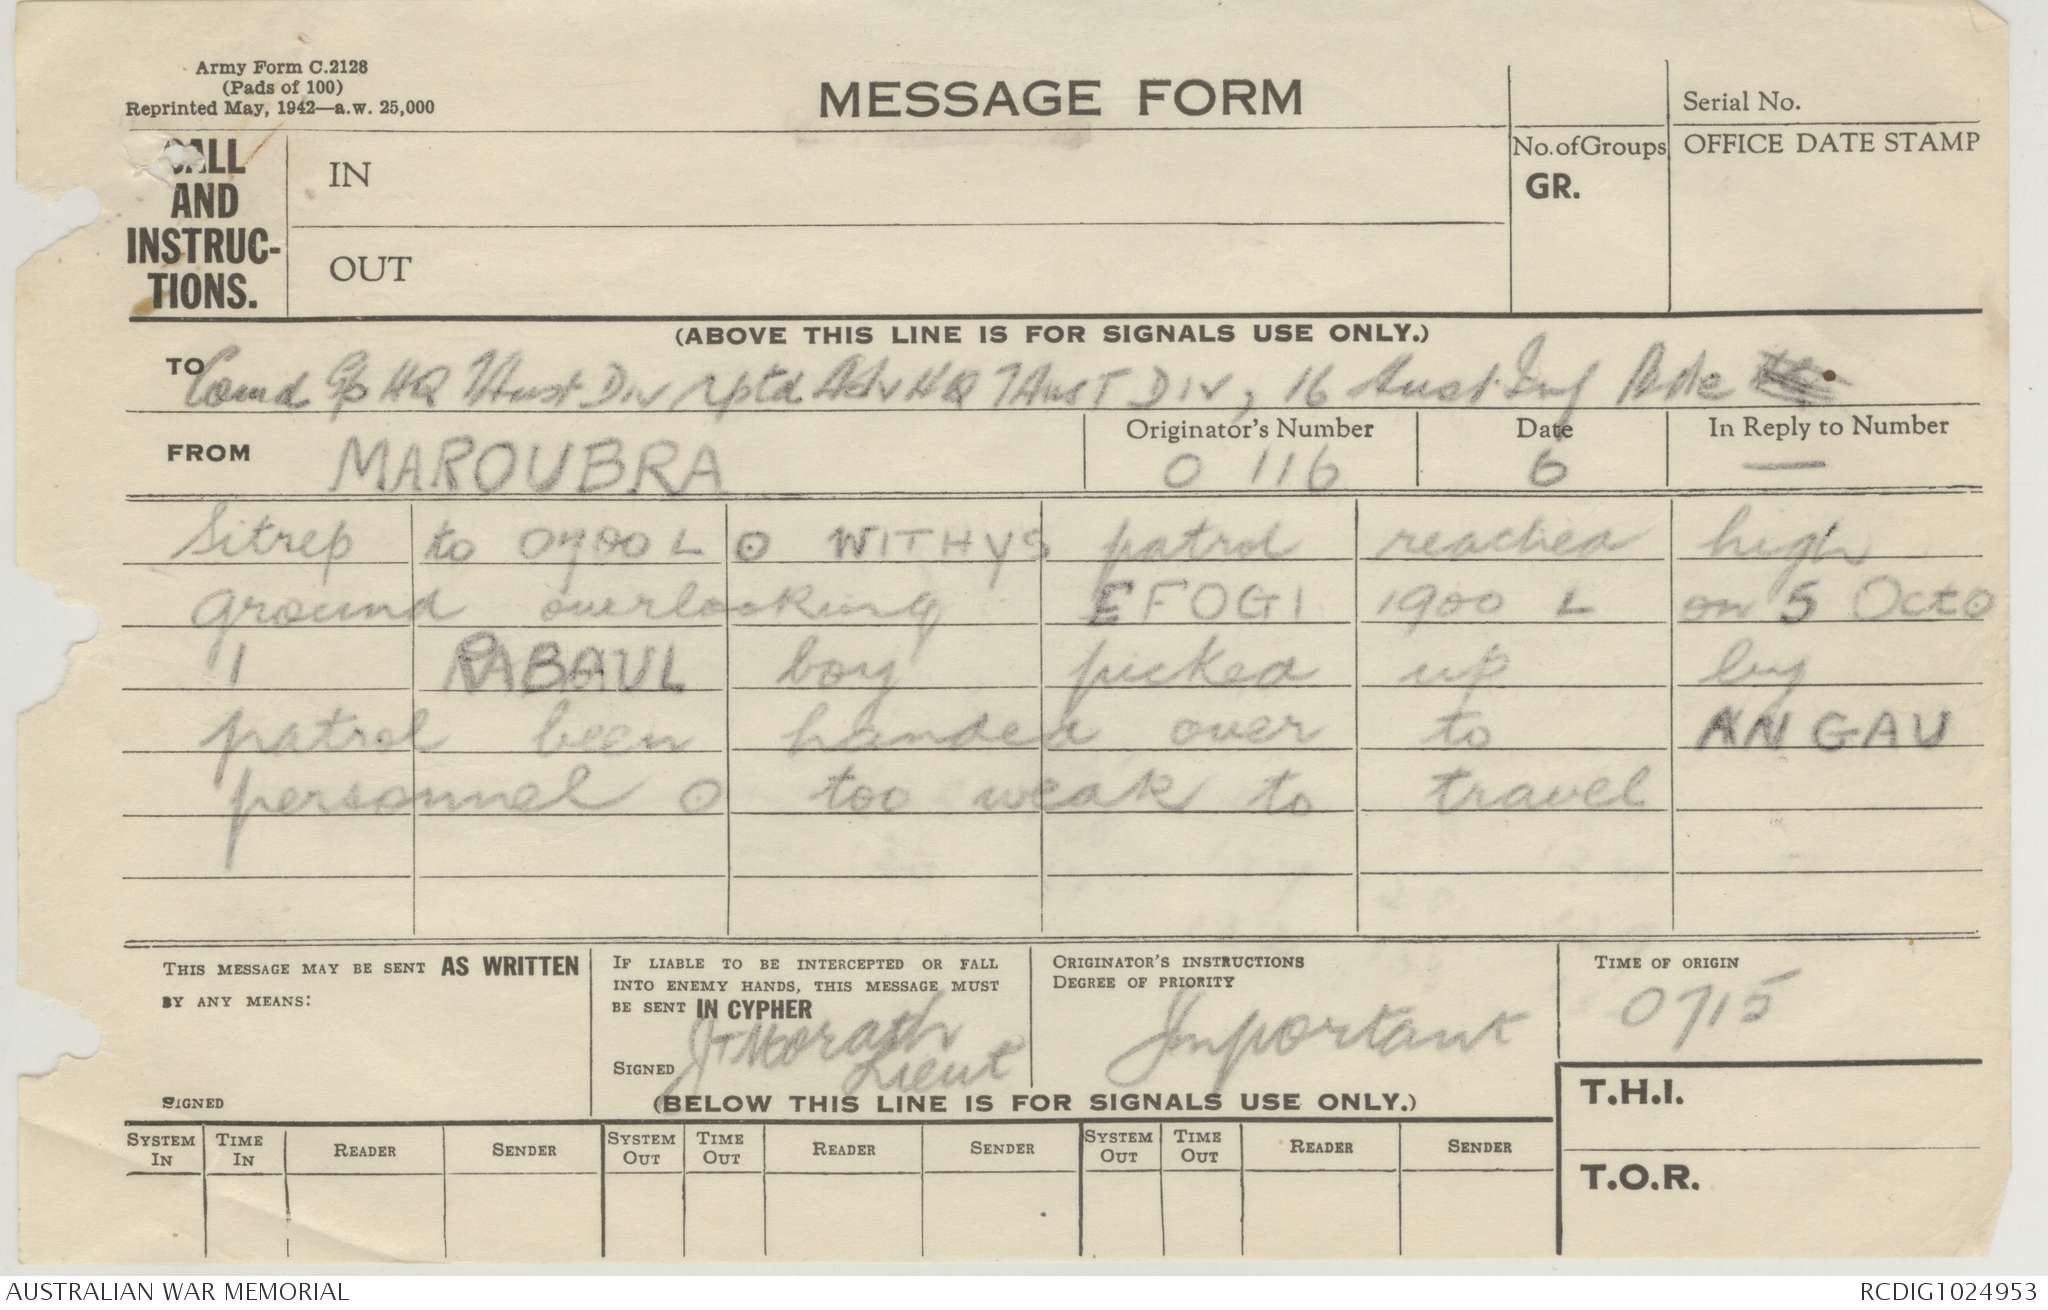 Army Form C.2128
(Pads of 100)
Reprinted May, 1942—a.w. 25,000
MESSAGE FORM
Serial No.
CALL AND INSTRUC-TIONS.
IN
OUT
No. of Groups
GR.
OFFICE DATE STAMP
(ABOVE THIS LINE IS FOR SIGNALS USE ONLY.)
TO Comd Gp HQ 7 Aust Div rptd Adv HQ 7 Aust Div, 16 Aust Inf Bde
FROM MAROUBRA
Originator's Number O 116
Date 6
In Reply to Number —
Sitrep to 0700 L O WITHYS patrol reached high
ground overlooking EFOGI 1900 L on 5 Oct O
1 RABAUL boy picked up by
patrol been handed over to ANGAU
personnel O too weak to travel
THIS MESSAGE MAY BE SENT AS WRITTEN
BY ANY MEANS:
SIGNED
IF LIABLE TO BE INTERCEPTED OR FALL
INTO ENEMY HANDS, THIS MESSAGE MUST
BE SENT IN CYPHER
SIGNED Lieut
ORIGINATOR'S INSTRUCTIONS
DEGREE OF PRIORITY
Important
TIME OF ORIGIN
0715
(BELOW THIS LINE IS FOR SIGNALS USE ONLY.)
T.H.I.
T.O.R.
SYSTEM IN TIME IN READER SENDER SYSTEM OUT TIME OUT READER SENDER SYSTEM OUT TIME OUT READER SENDER
AUSTRALIAN WAR MEMORIAL
RCDIG1024953